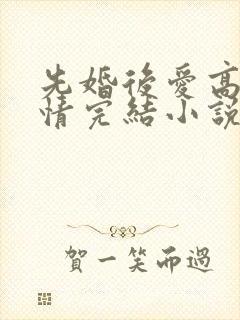 先婚後愛高
情完結小説
賀一笑而過